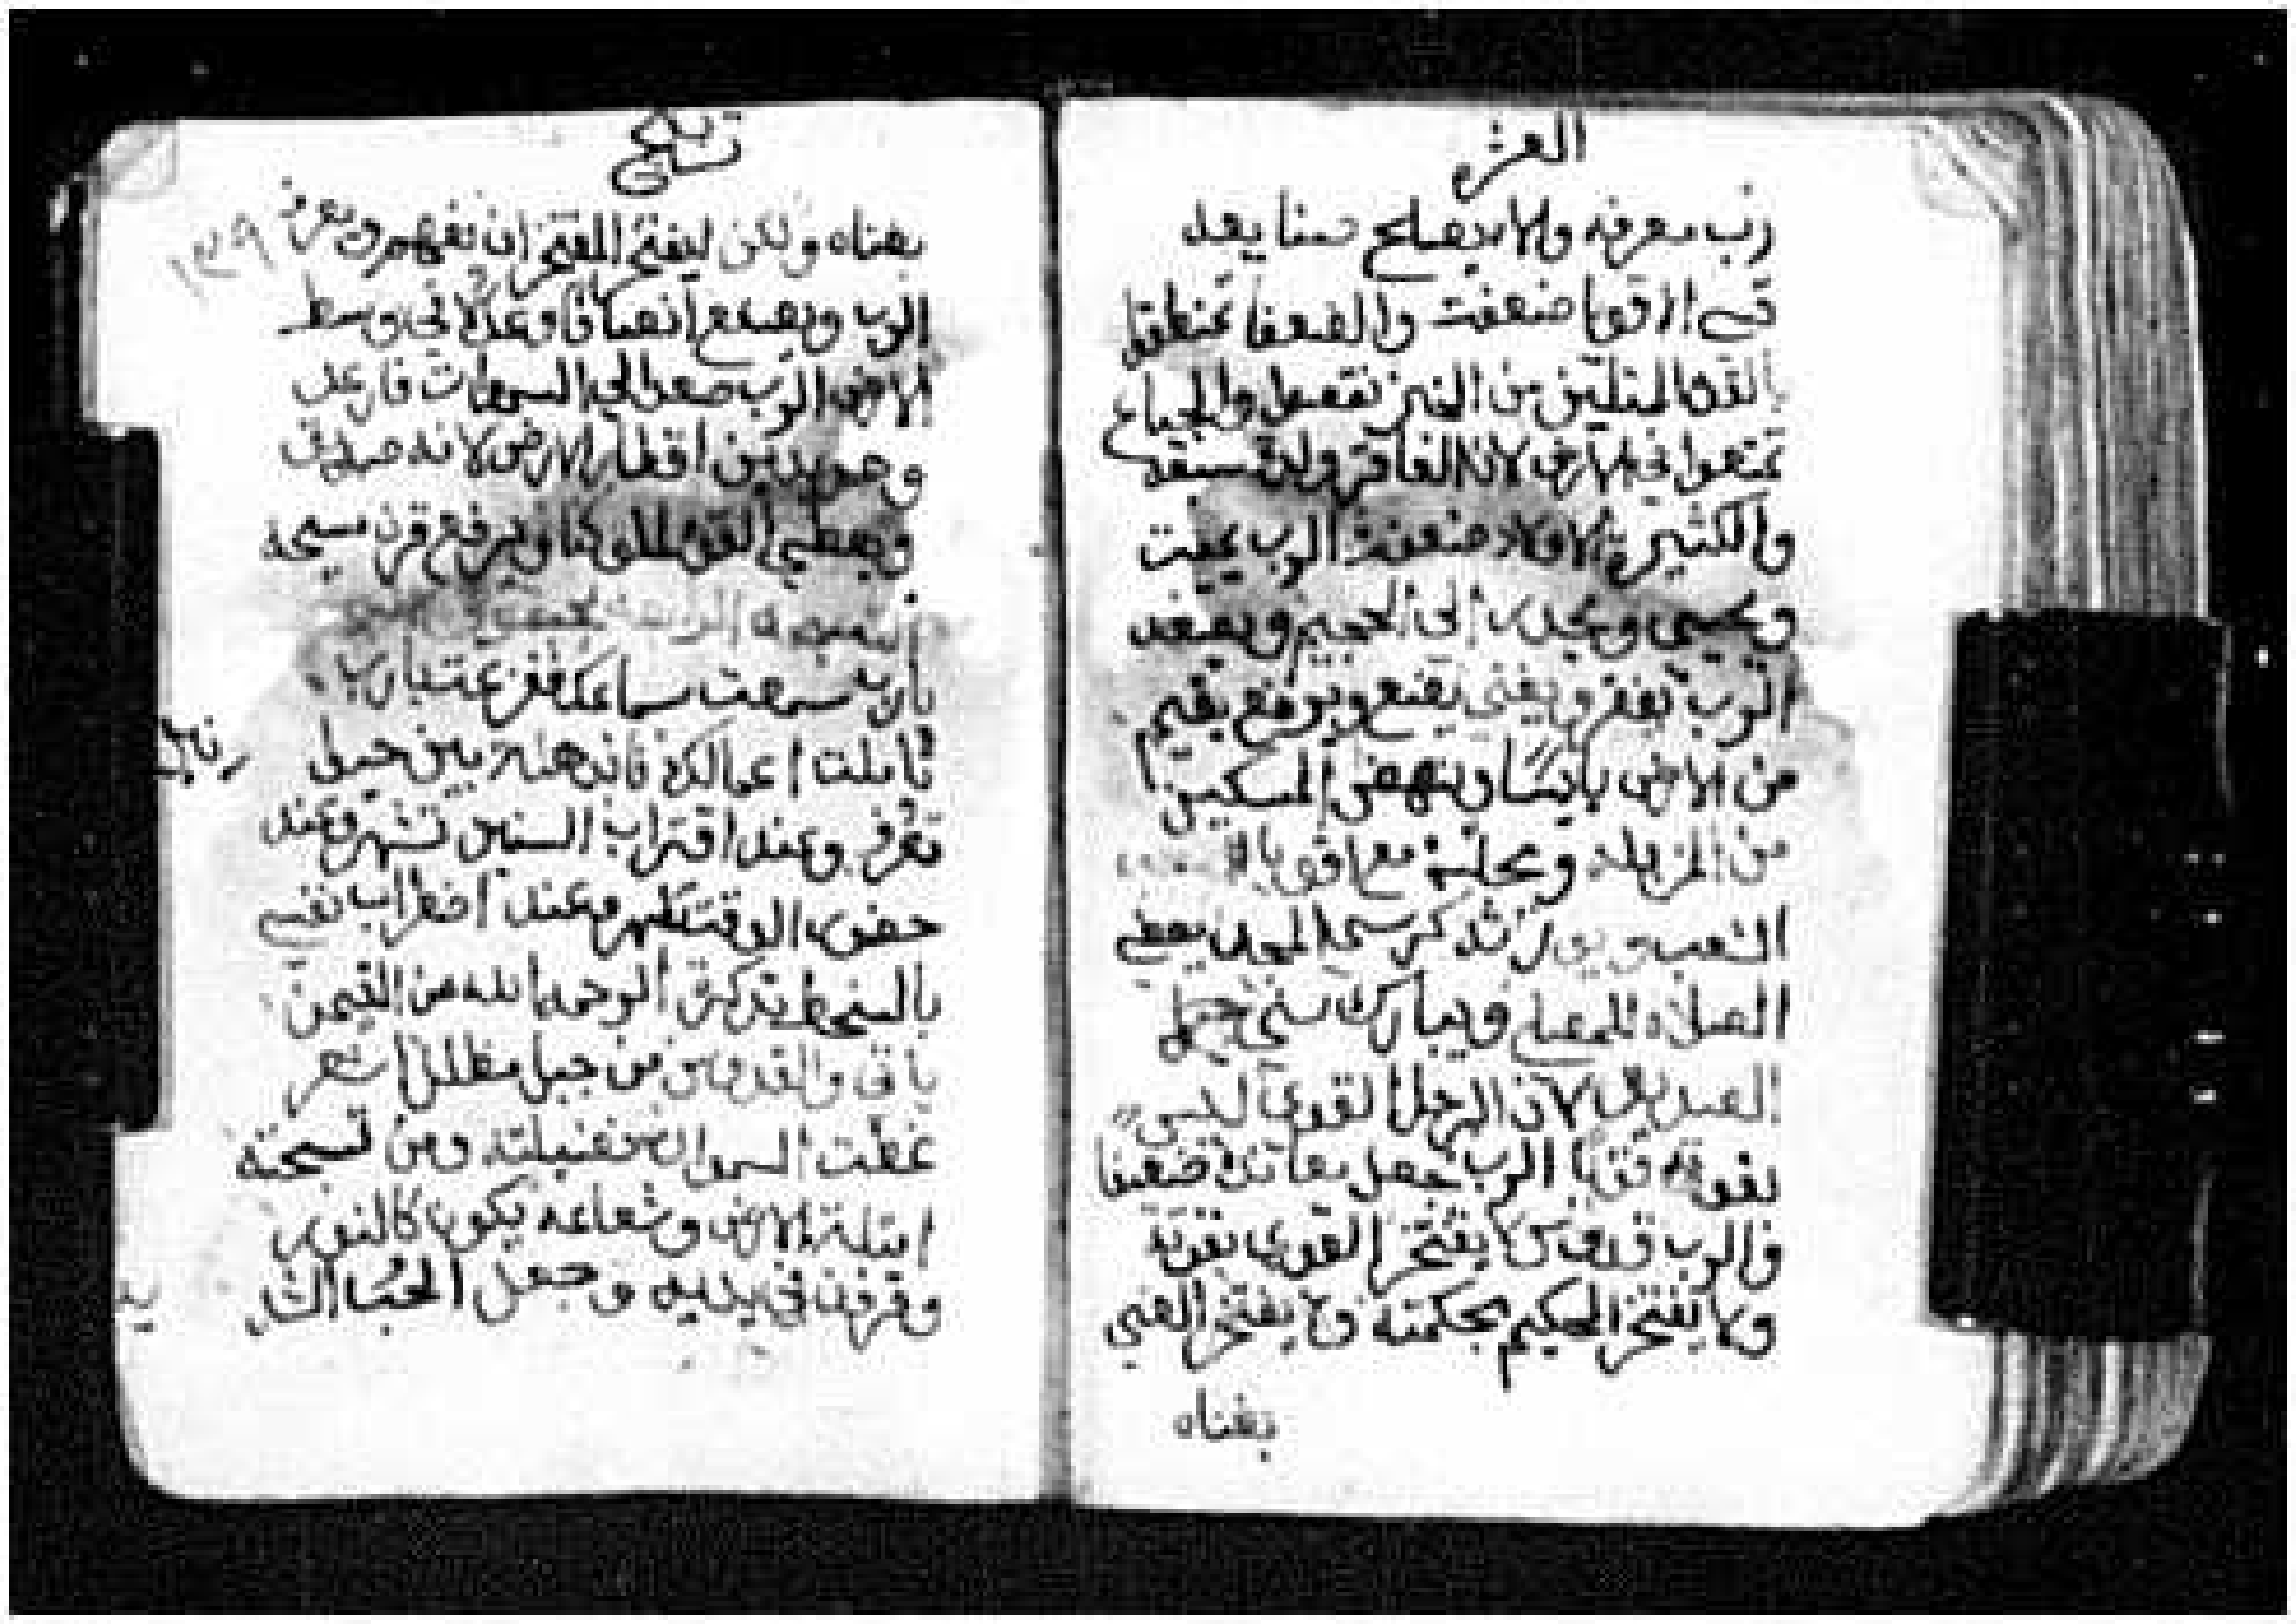 العشر
رب معرفه والاه يصلح صنايعه
قسي الاقويا ضعفت والضعفا تمنطقوا
بالقوه الممتلين من الخبز نقصوا والجياع
تمتعوا في الارض لان العاقر ولدت سبعه
والكثيرة الاولاد ضعفت الرب يميت
ويحيي ويحدر الى الجحيم ويصعد
الرب يفقر ويغني يضع ويرفع يقيم
من الارض بايسا وينهض المسكين
من المزبله ويجلسه مع اقويا
الشعب ويورثه كرسي المجد يعطي
الصلاه للمصلي ويبارك سني
الصديق لان الرجل القوي ليس
بقوته قويا الرب جعل معاندك ضعيفا
والرب قدوس لا يفتخر القوي بقوته
ولا يفتخر الحكيم بحكمته ولا يفتخر الغني
بغناه
بغناه ولكن ليفتخر المفتخر ان يفهم ويعرف
الرب ويصنع انصافا وعدلا في وسط
الارض الرب صعد الى السموات فارعد
وهو يدين اقطار الارض لانه صديق
ويعطي القوه لملوكنا ويرفع قرن مسيحه
التسبحه الرابعه
يارب سمعت سماعك ففزعت يارب
تاملت اعمالك فانذهلت بين حيوانين
تعرف وعند اقتراب السنين تشهر وعند
حضور الوقت تظهر وعند اضطراب نفسي
بالسخط تذكر الرحمه الله من التيمن
ياتي والقدوس من جبل مظلل اشعر
غطت السموات فضيلته ومن تسبحته
امتلت الارض وشعاعه يكون كالنور
وقرون في يديه وجعل الحب
١٣٩